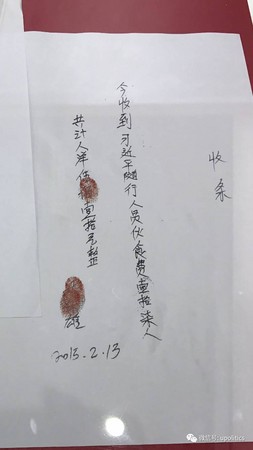 收条
今收到习近平随行人员伙食费壹拾柒人
共计人洋伍壹拾元整
雄
2015.2.13
微信号: